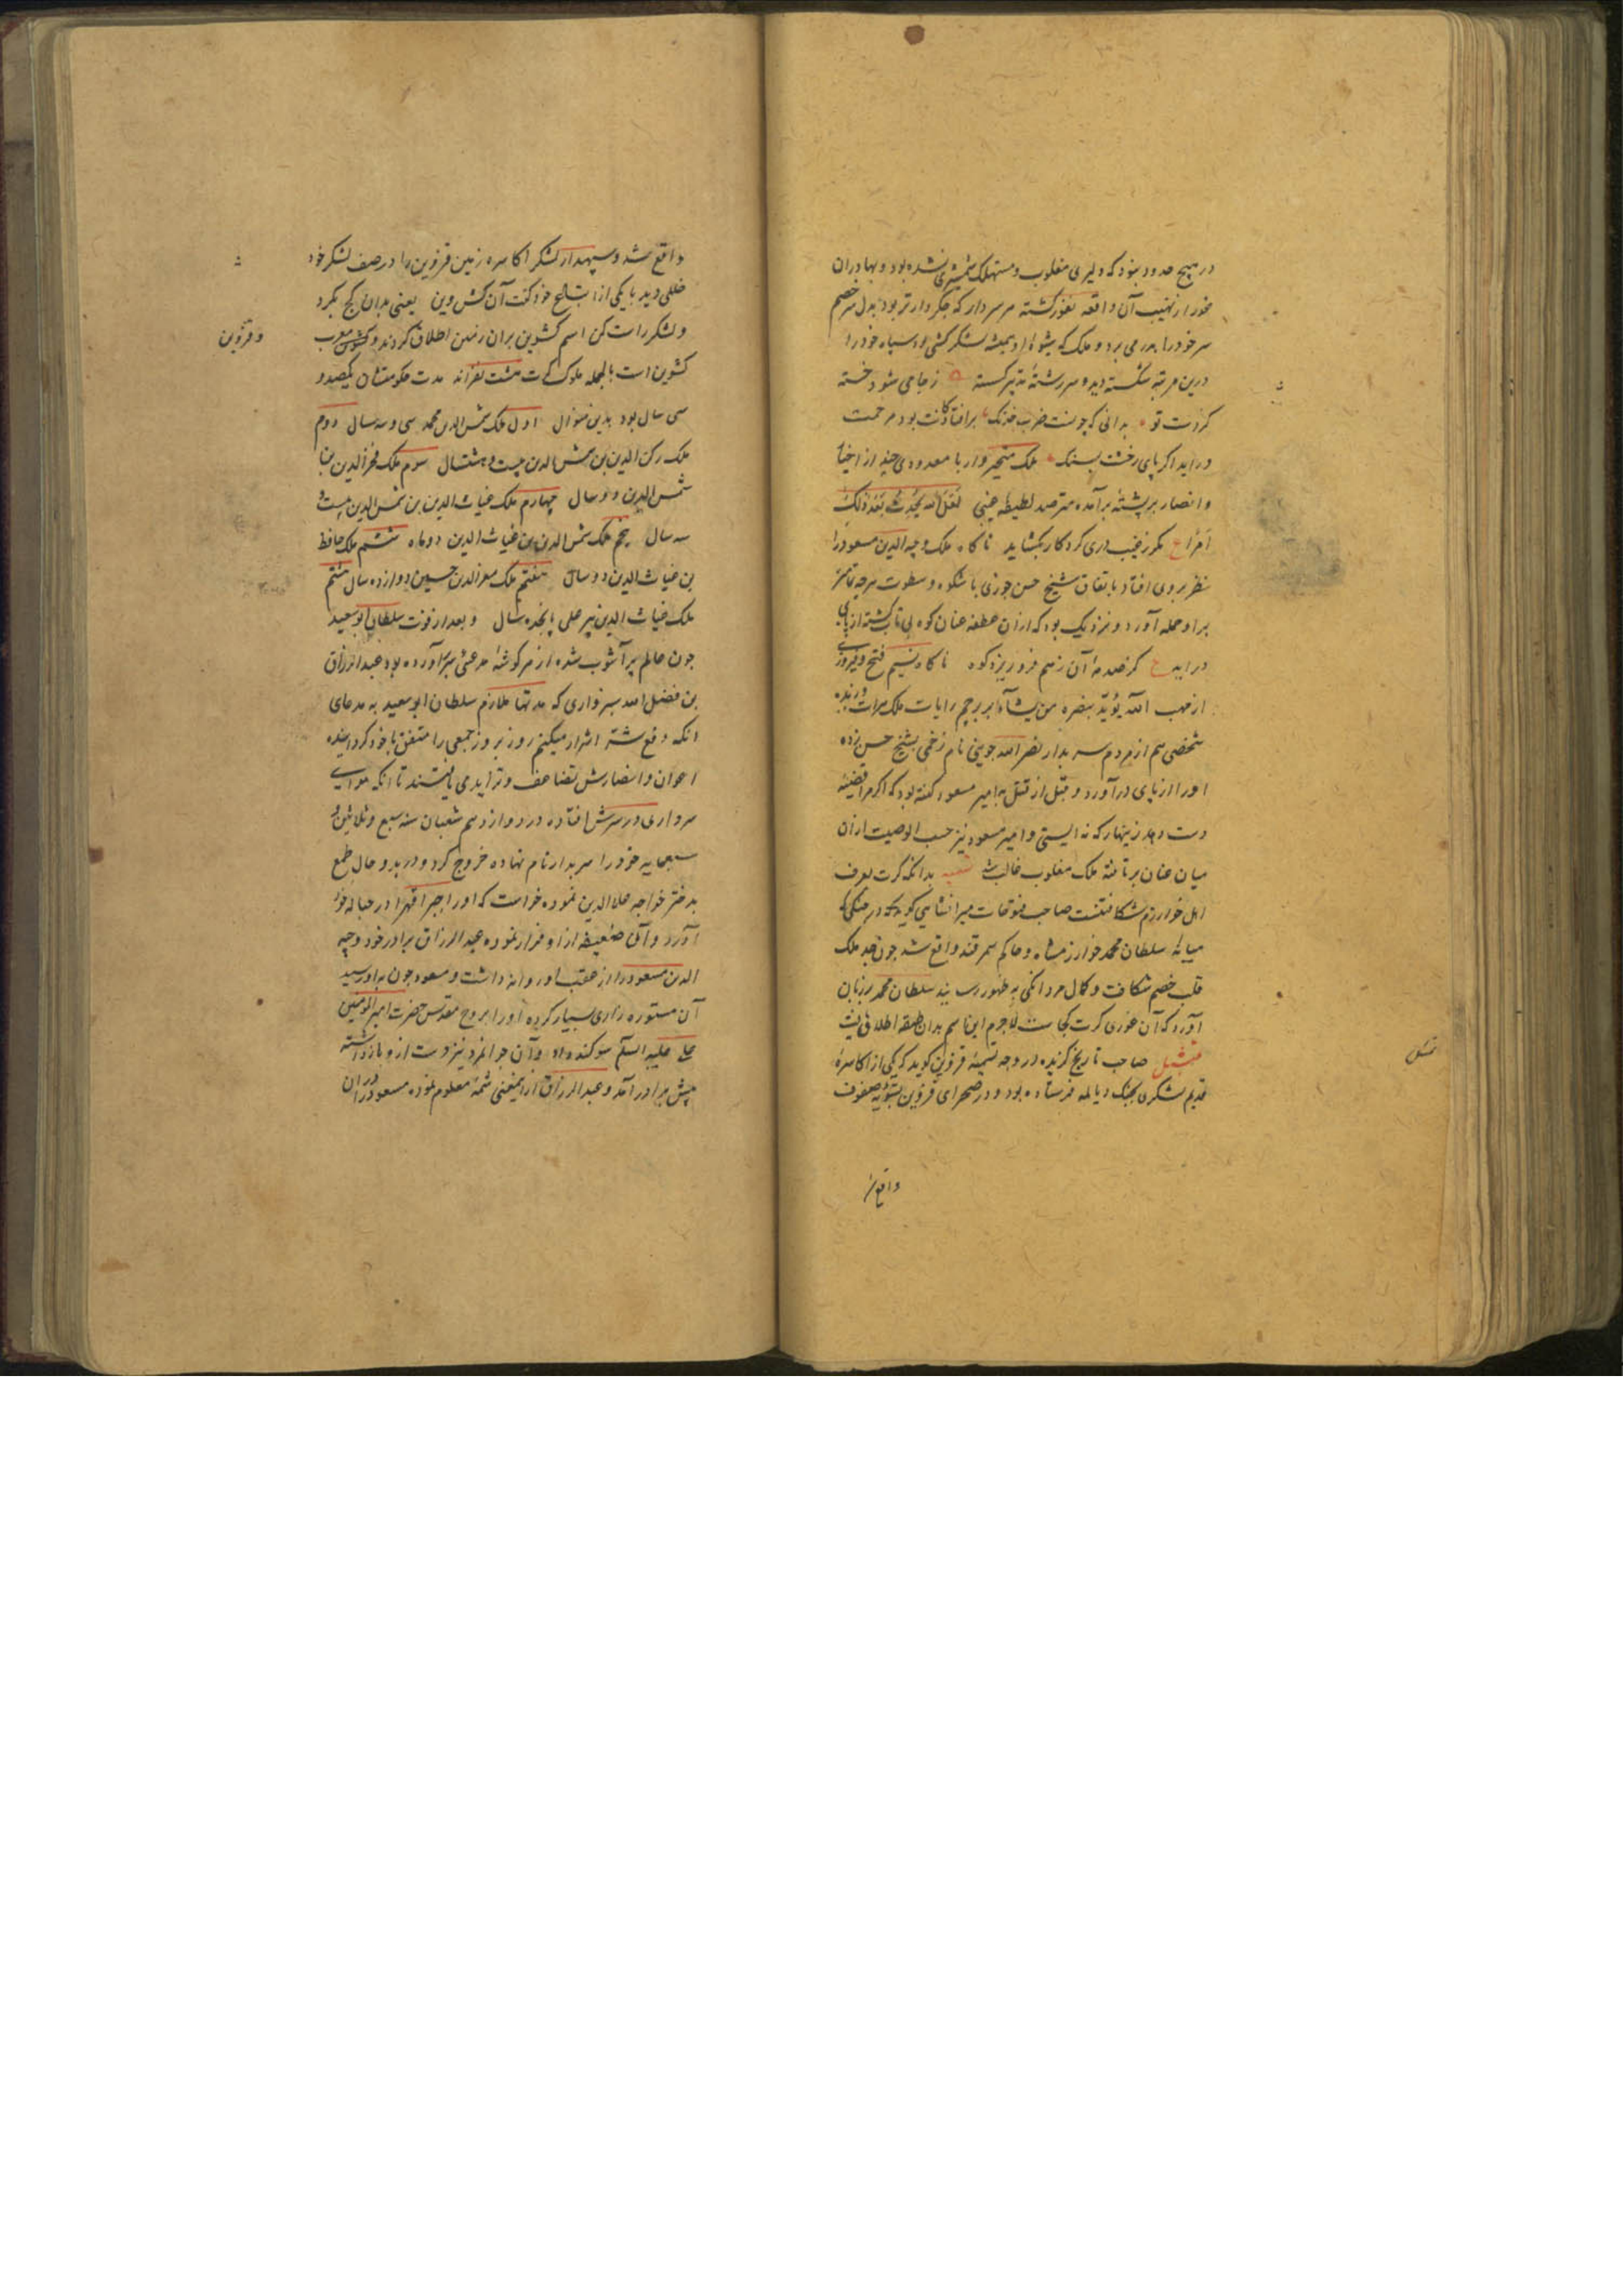 در هیچ حدود نبود که دلیری مغلوب و مستهلک شمشیری نشده بود و بهادران
خود را از نهیب آن واقعه نغور گشته هر سردار که جکر دارتر بود بدل سر خصم
سر خود را بدر می برد و ملک که شیوهٔ او همیشه لشکرکشی بود سپاه خود را
درین مرتبه شکسته دید و سر رشتهٔ تدبیر کسسته ز جامی شود خسته
کردست تو بدانی که چونست ضرب خدنک برافتادکانت بود مرحمت
دراید اکر پای رخشت بسنک ملک متحیروار با معدودی چند از اخیار
و انصار بر پشتهٔ برآمده مترصد لطیفهٔ غیبی لَعَلَّ اللهَ یُحْدِثُ بَعْدَ ذٰلِکَ
اَمْرًا ع مکر ز غیب دری کردکار بکشاید ناکاه ملک وجیه الدین مسعود را
نظر بروی افتاد باتفاق شیخ حسن جوری با شکوه و سطوت هرچه تمامتر
براو حمله آورد و نزدیک بود که ازان عطفه عنان کوه بی تاب کشته از پای
دراید ع کر صدمهٔ آن ز هم فرو ریزد کوه ناکاه نسیم فتح و فیروزی
از مهب الله یؤید بنصره من یشآء بر پرچم رایات ملک هرات وزیده
شخصی هم از مردم سربدار نصرالله جوینی نام زخمی بشیخ حسن زده
او را از پای درآورد و قبل از قتل به امیر مسعود کفته بود که اکر مرا قضیه
دست دهد زینهار که نه ایستی و امیر مسعود نیز حسب الوصیت ازان
میان عنان برتافته ملک مغلوب غالب شد تنبیه بدانکه کرت بعرف
اهل خوارزم شکافتنست صاحب فتوحات میرانشاهی کوید که در جنکی که
میانهٔ سلطان محمد خوارزمشاه و حاکم سمرقند واقع شد چون جد ملک
قلب خصم شکافت و کمال مردانکی به ظهور رسانید سلطان محمد بر زبان
آورد که آن غوری کرت کجاست لاجرم این اسم بدان طبقه اطلاق یافت
تمثیل صاحب تاریخ کزیده در وجه تسمیهٔ قزوین کوید که یکی از اکاسرهٔ
قدیم لشکری بجنک دیالمه فرستاده بود و در صحرای قزوین تسویهٔ صفوف
تمثیل
واقع
واقع شد و سپهدار لشکر اکاسره زمین قزوین را در صف لشکر خود
خللی دید با یکی از اتباع خود کفت آن کش وین یعنی بدان کنج نکرد
و لشکر راست کن اسم کشوین بران زمین اطلاق کردند و کشوین معرب
و قزوین
کشوین است بالجمله ملوک کرت هشت نفراند مدت حکومتشان یکصد و
سی سال بود بدین منوال اول ملک شمس الدین محمد سی و سه سال دوم
ملک رکن الدین بن شمس الدین بیست و هشتسال سوم ملک فخرالدین بن
شمس الدین دو سال چهارم ملک غیاث الدین بن شمس الدین بیست و
سه سال پنجم ملک شمس الدین بن غیاث الدین دو ماه ششم ملک حافظ
بن غیاث الدین دو سال هفتم ملک معزالدین حسین دوازده سال هشتم
ملک غیاث الدین پیر علی پانجده سال و بعد از فوت سلطان ابوسعید
چون عالم پر آشوب شده از هر کوشه مدعئی سر برآورده بود عبدالرزاق
بن فضل الله سبزواری که مدتها ملازم سلطان ابوسعید به مدعای
آنکه دفع شر اشرار میکنم روز بروز جمعی را متفق با خود کردانیده
اعوان و انصارش تضاعف و تزاید می یافتند تا آنکه هوای
سرداری در سرش افتاده در دوازدهم شعبان سنه سبع و ثلاثین و
سبعمایه خود را سربدار نام نهاده خروج کرد و در بدو حال طمع
بدختر خواجه علاالدین نموده خواست که او را جبرا قهرا در حباله خود
آورد و آن ضعیفه از او فرار نموده عبدالرزاق برادر خود وجیه
الدین مسعود را از عقب او روانه داشت و مسعود چون به او رسید
آن مستوره زاری بسیار کرده او را بروح مقدس حضرت امیرالمومنین
علی علیه السلم سوکند داد و آن جوانمرد نیز دست از و بازداشته
پیش برادر آمد و عبدالرزاق ازاینمعنی شمهٔ معلوم نموده مسعود را دران